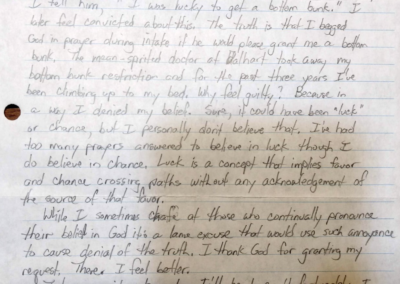 I tell him, "I was lucky to get a bottom bunk." I
later feel convicted about this. The truth is that I begged
God in prayer during intake if he would please grant me a bottom
bunk. The mean-spirited doctor at Dalhart took away my
bottom bunk restriction and for the past three years I've
been climbing up to my bed. Why feel guilty? Because in
a way I denied my belief. Sure, it could have been "luck"
or chance, but I personally don't believe that. I've had
too many prayers answered to believe in luck though I
do believe in chance. Luck is a concept that implies favor
and chance crossing paths without any acknowledgement of
the source of that favor.
While I sometimes chafe at those who continually pronounce
their belief in God it's a lame excuse that would use such annoyance
to cause denial of the truth. I thank God for granting my
request. There. I feel better.